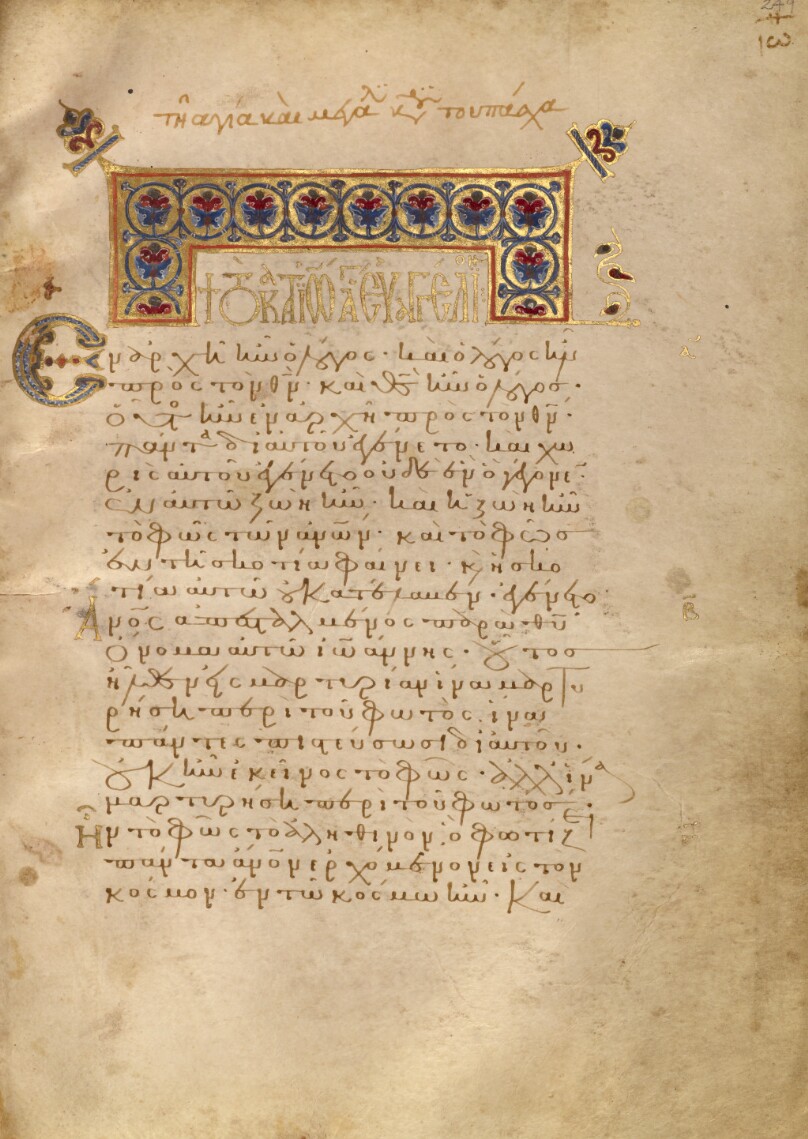 τῆ ἁγία καὶ μεγάλ κυ τοῦ πάσχα
† τὸ κατὰ ἰω ἅγιον εὐαγγέλιον
Ἐν ἀρχῆ ἦν ὁ λόγος· καὶ ὁ λόγος ἦν
πρὸς τὸν θν· καὶ θς ἦν ὁ λόγος·
οὗτος ἦν ἐν ἀρχῆ πρὸς τὸν θν·
πάντα δι αὐτοῦ ἐγένετο· καὶ χω
ρὶς αὐτοῦ ἐγένετο οὐδὲ ἓν ὃ γέγονεν·
ἐν αὐτῶ ζωὴ ἦν· καὶ ἡ ζωὴ ἦν
τὸ φῶς τῶν ἀνων· καὶ τὸ φῶς
ἐν τῆ σκοτία φαίνει· κ ἡ σκο
τία αὐτὼ οὐ κατέλαβεν· ἐγένετο
ἄνος ἀπεσταλμένος παρὰ θυ
ὄνομα αὐτῶ ἰωάννης· οὗτος
ἦλθεν εἰς μαρτυρίαν ἵνα μαρτυ
ρήση περὶ τοῦ φωτός· ἵνα
πάντες πιστεύσωσι δι αὐτοῦ·
οὐκ ἦν ἐκεῖνος τὸ φῶς· ἀλλ ἵνα
μαρτυρήση περὶ τοῦ φωτός·
Ἦν τὸ φῶς τὸ ἀληθινὸν· ὃ φωτίζει
πάντα ἄνον ἐρχόμενον εἰς τὸν
κόσμον· ἐν τῶ κόσμω ἦν· Καὶ